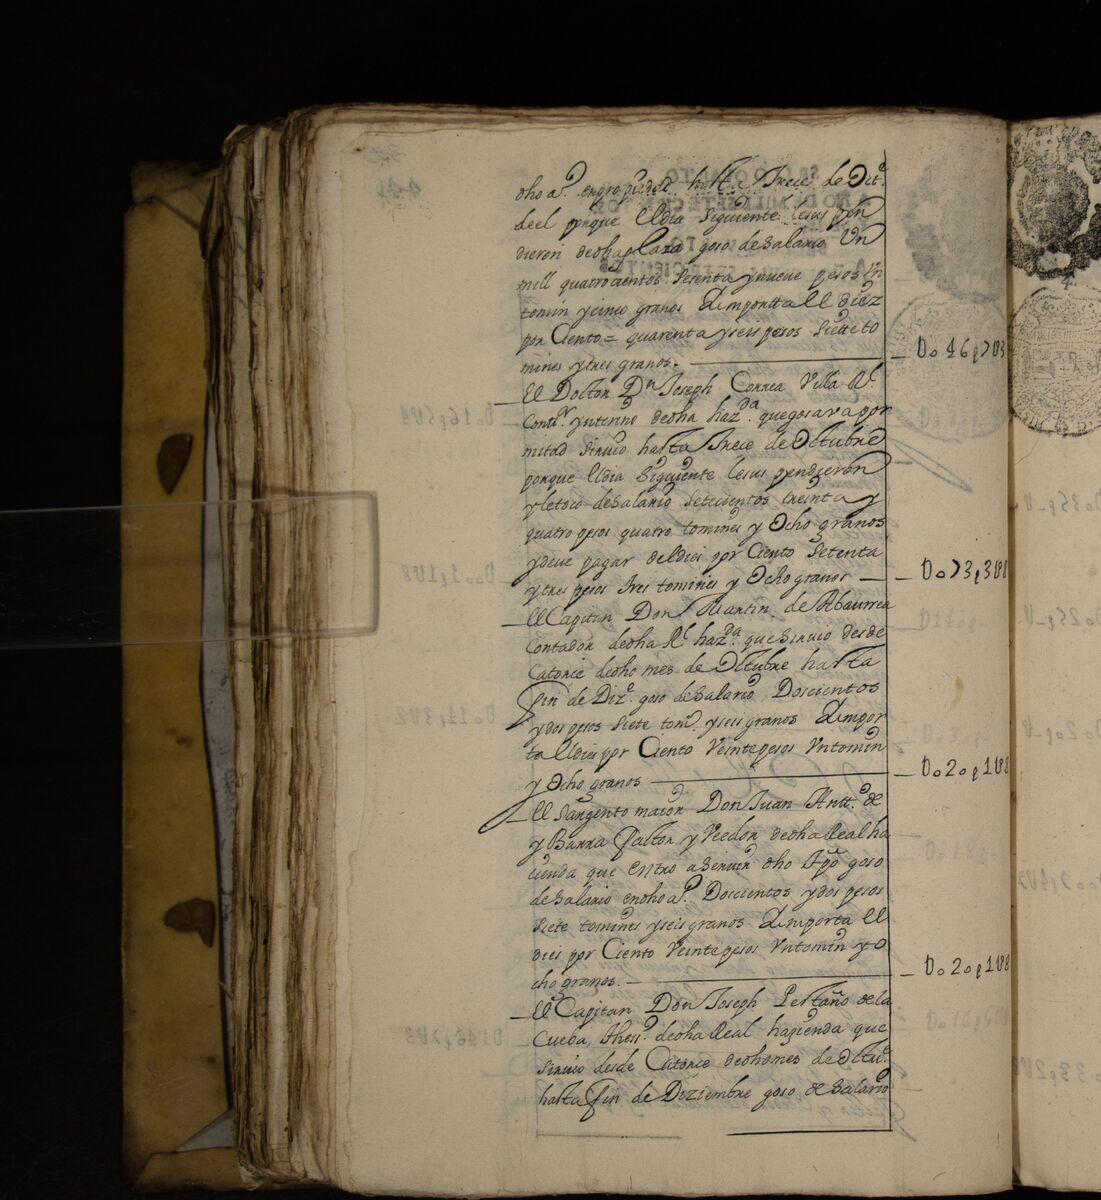 dho a.º engro hasta trece de Oct.e
de el porque el dia siguiente le sus pen
dieron de dha plaza goso de salario Un
mill quatrocientos setenta y nueve pesos Un
tomin y cinco granos Ymportta el diez
por Ciento = quarenta y seis pesos siete to
mines y tres granos. — U046p703
El Doctor D.n Joseph Correa Villa R.l
Cont.or ynterino de dha haz.da que gosava por
mitad sirvio hasta trece de Octubre
porque el dia siguiente le sus pendieron
y le toco de salario setecientos treinta y
quatro pesos quatro tomines y Ocho granos
y deve pagar del dies por Ciento setenta
y tres pesos tres tomines y Ocho granos — U073p3U8
El Capitan Don Martin de Rbaurrea
Contador de dha R.l haz.da que sirvio desde
Catorce de dho mes de Octubre hasta
fin de Diz.e goso de salario Doscientos
y dos pesos siete tom.s y seis granos Ympor
ta el dies por Ciento Veinte pesos Un tomin
y Ocho granos — U020p1U8
El Sargento maior Don Juan Antt.o de
y Barra Factor y Veedor de dha Real ha
cienda que entro a servir dho tpō goso
de salario en dho a.º Doscientos y dos pesos
siete tomines y seis granos Ymporta el
dies por Ciento Veinte pesos Un tomin y o
cho granos. — U020p1U8
El Capitan Don Joseph de la
Cueba thess.o de dha Real hazienda que
sirvio desde Catorce de dho mes de Octu.e
hasta fin de Diziembre goso de salario